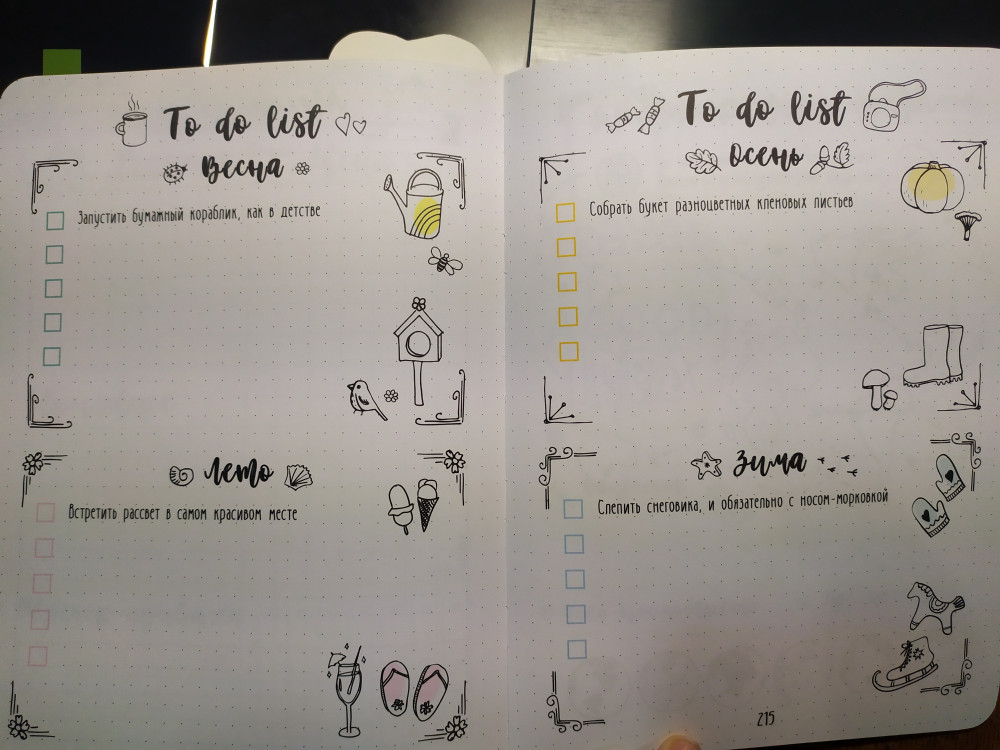 To do list
Весна
Запустить бумажный кораблик, как в детстве
Лето
Встретить рассвет в самом красивом месте
To do list
Осень
Собрать букет разноцветных кленовых листьев
Зима
Слепить снеговика, и обязательно с носом-морковкой
215